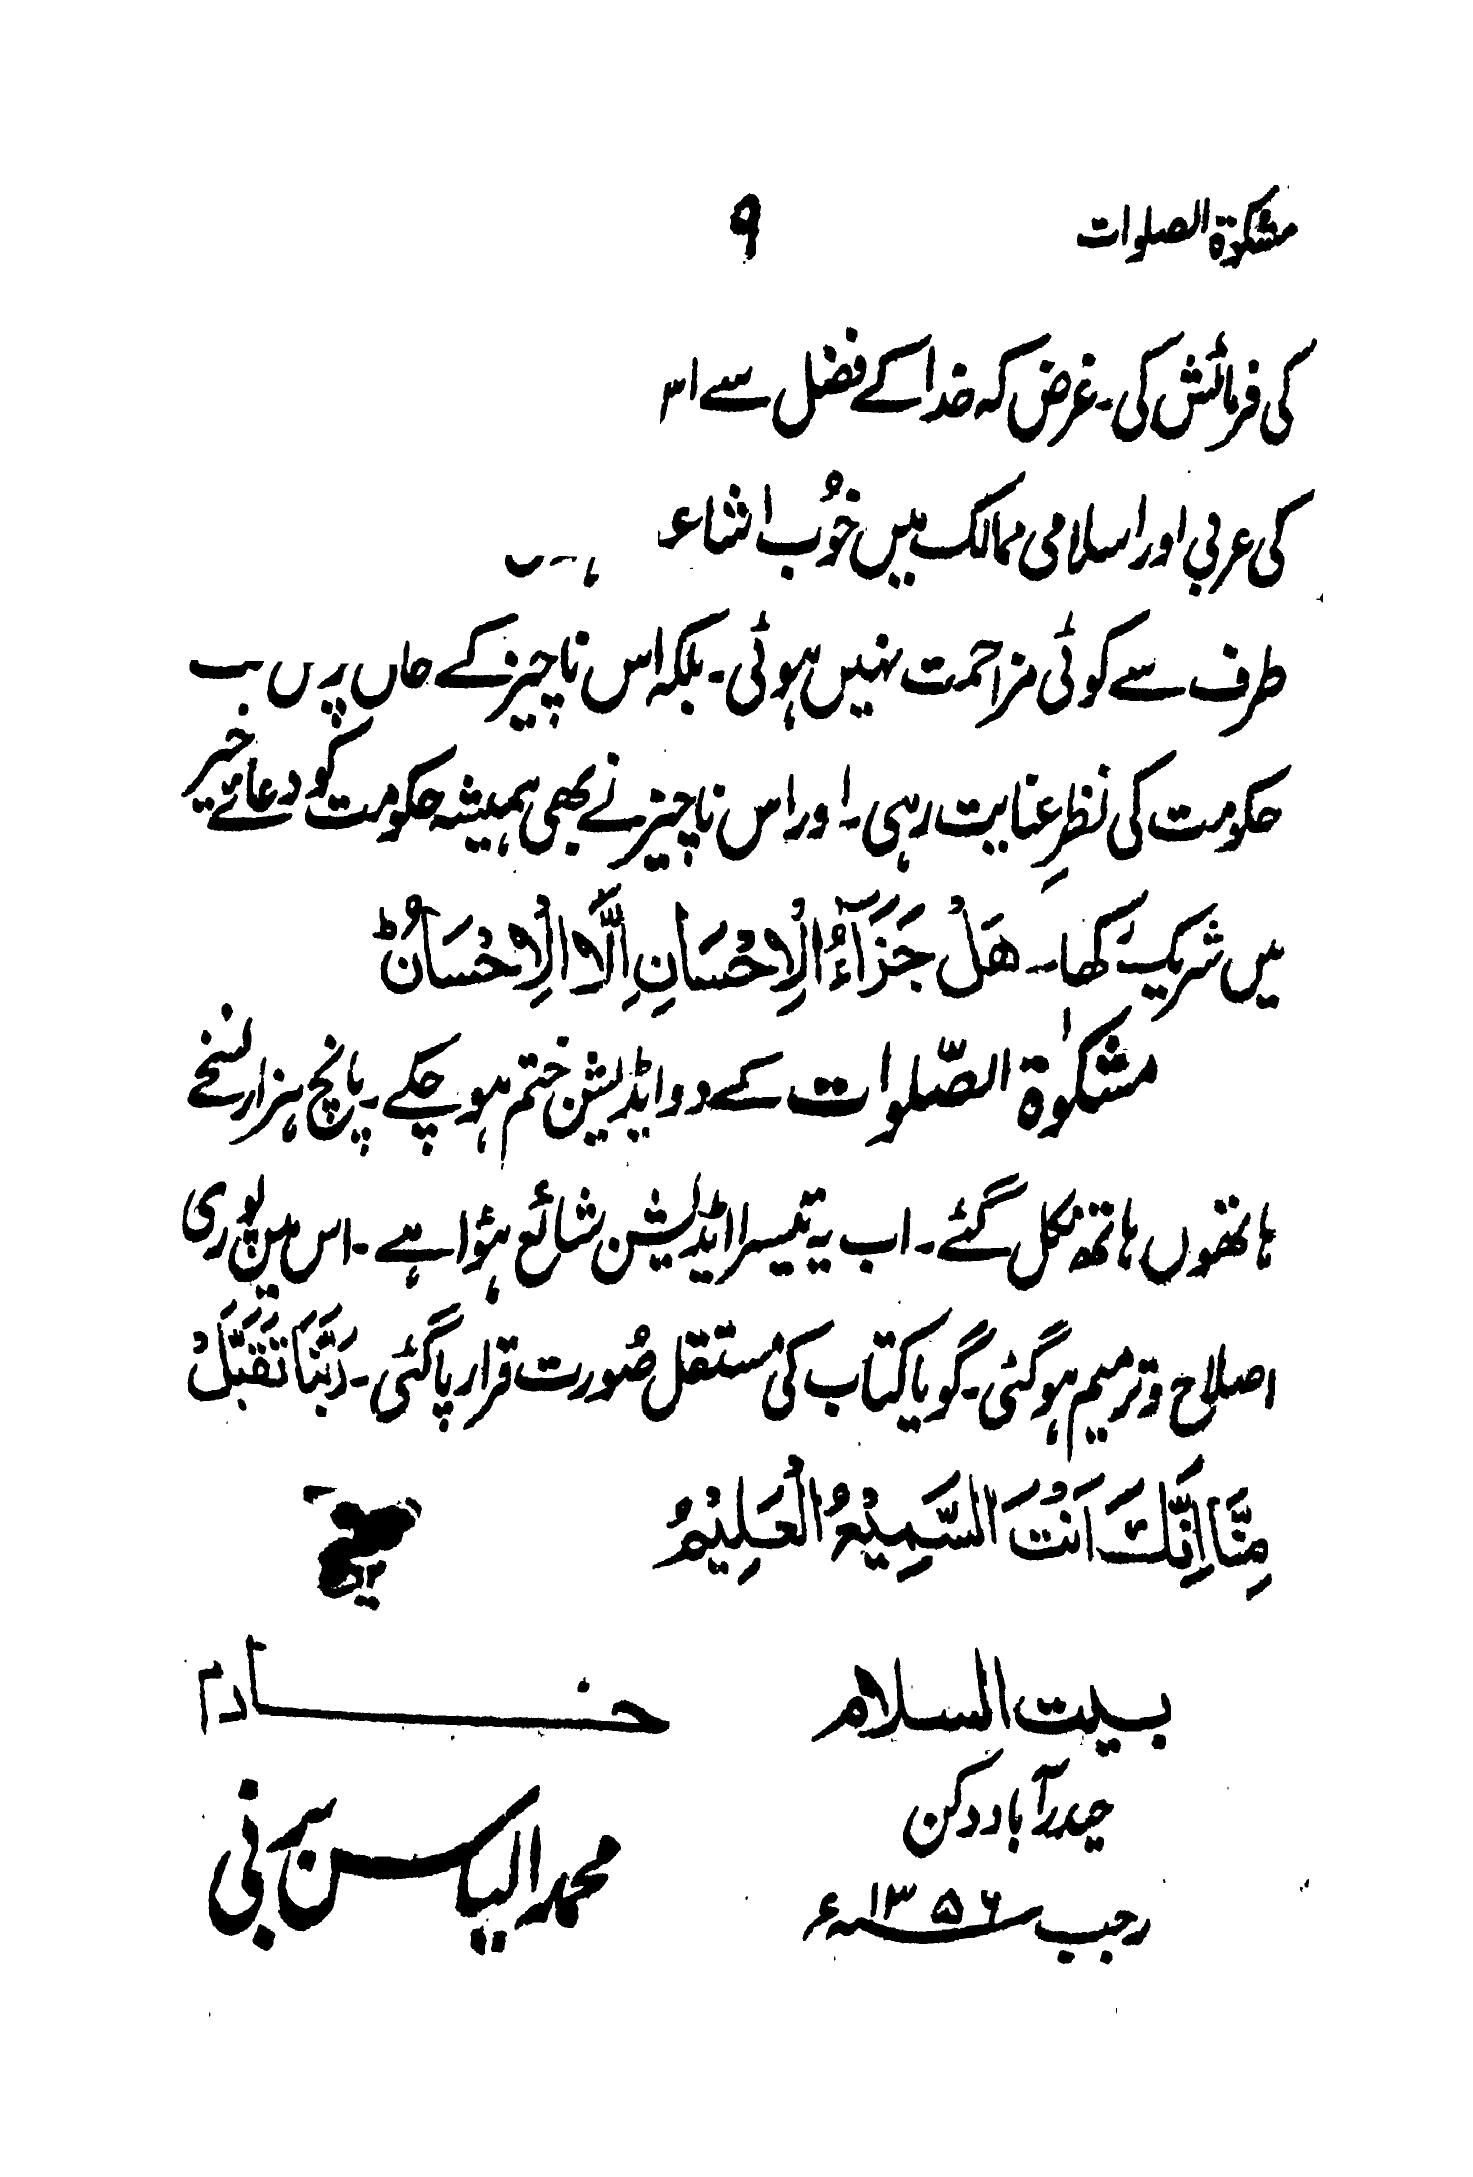 مشکوٰۃ الصلوات ۹
کی فرمائش کی۔ غرض کہ خدا کے فضل سے
کی عربی اور اسلامی ممالک میں خُوب
طرف سے کوئی مزاحمت نہیں ہوئی۔ بلکہ اس ناچیز کے
حکومت کی نظرِ عنایت رہی۔ اور اس ناچیز نے بھی ہمیشہ حکومت کو دعائے خیر
میں شریک رکھا۔ هَلْ جَزَآءُ الْاِحْسَانِ اِلَّا الْاِحْسَانُ ط
مشکوٰۃ الصّلوات کے دو ایڈیشن ختم ہو چکے۔ پانچ ہزار نسخے
ہاتھوں ہاتھ نکل گئے۔ اب یہ تیسرا ایڈیشن شائع ہؤا ہے۔ اس میں پوری
اصلاح و ترمیم ہوگئی۔ گویا کتاب کی مستقل صُورت قرار پا گئی۔ رَبَّنَا تَقَبَّلْ
مِنَّا اِنَّكَ اَنْتَ السَّمِيْعُ الْعَلِيْمُ
بیت السلام
حیدرآباد دکن
رجب ۱۳۵۶ء
خادم
محمد الیاس برنی